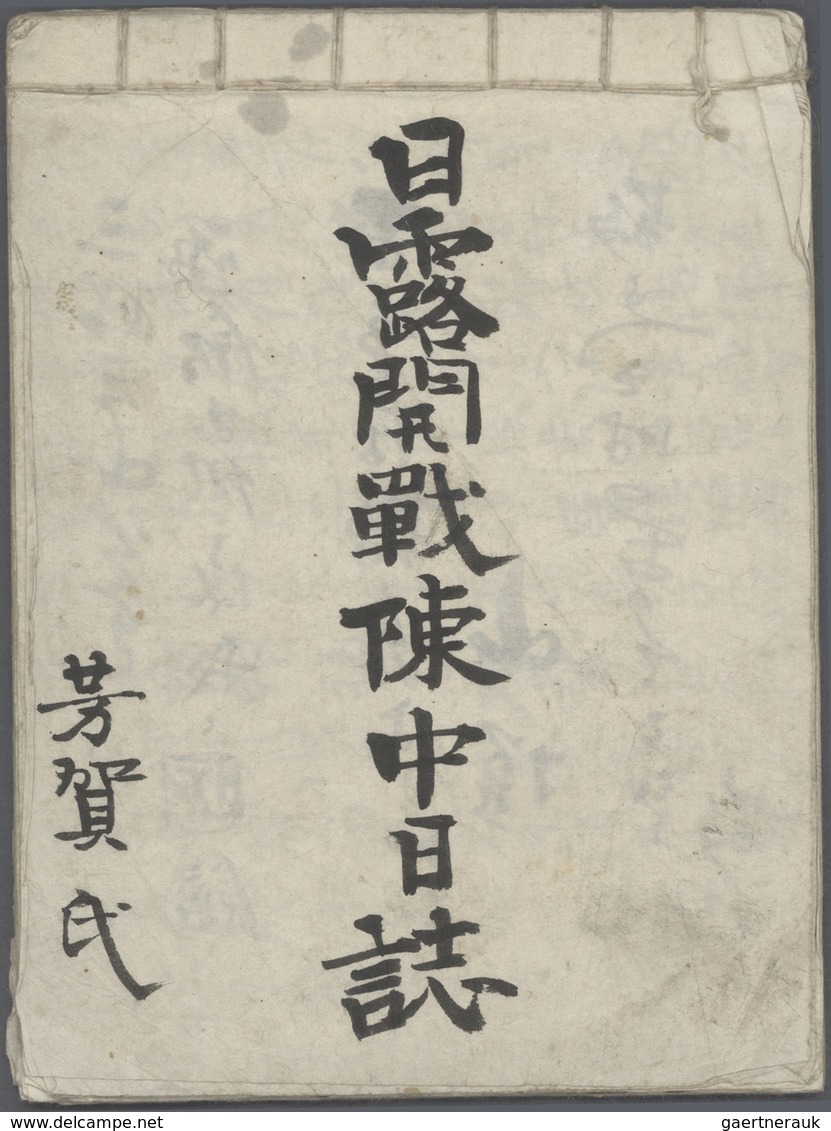 日露開戰陳中日誌
芳賀氏
www.delcampe.net
gaertnerauk